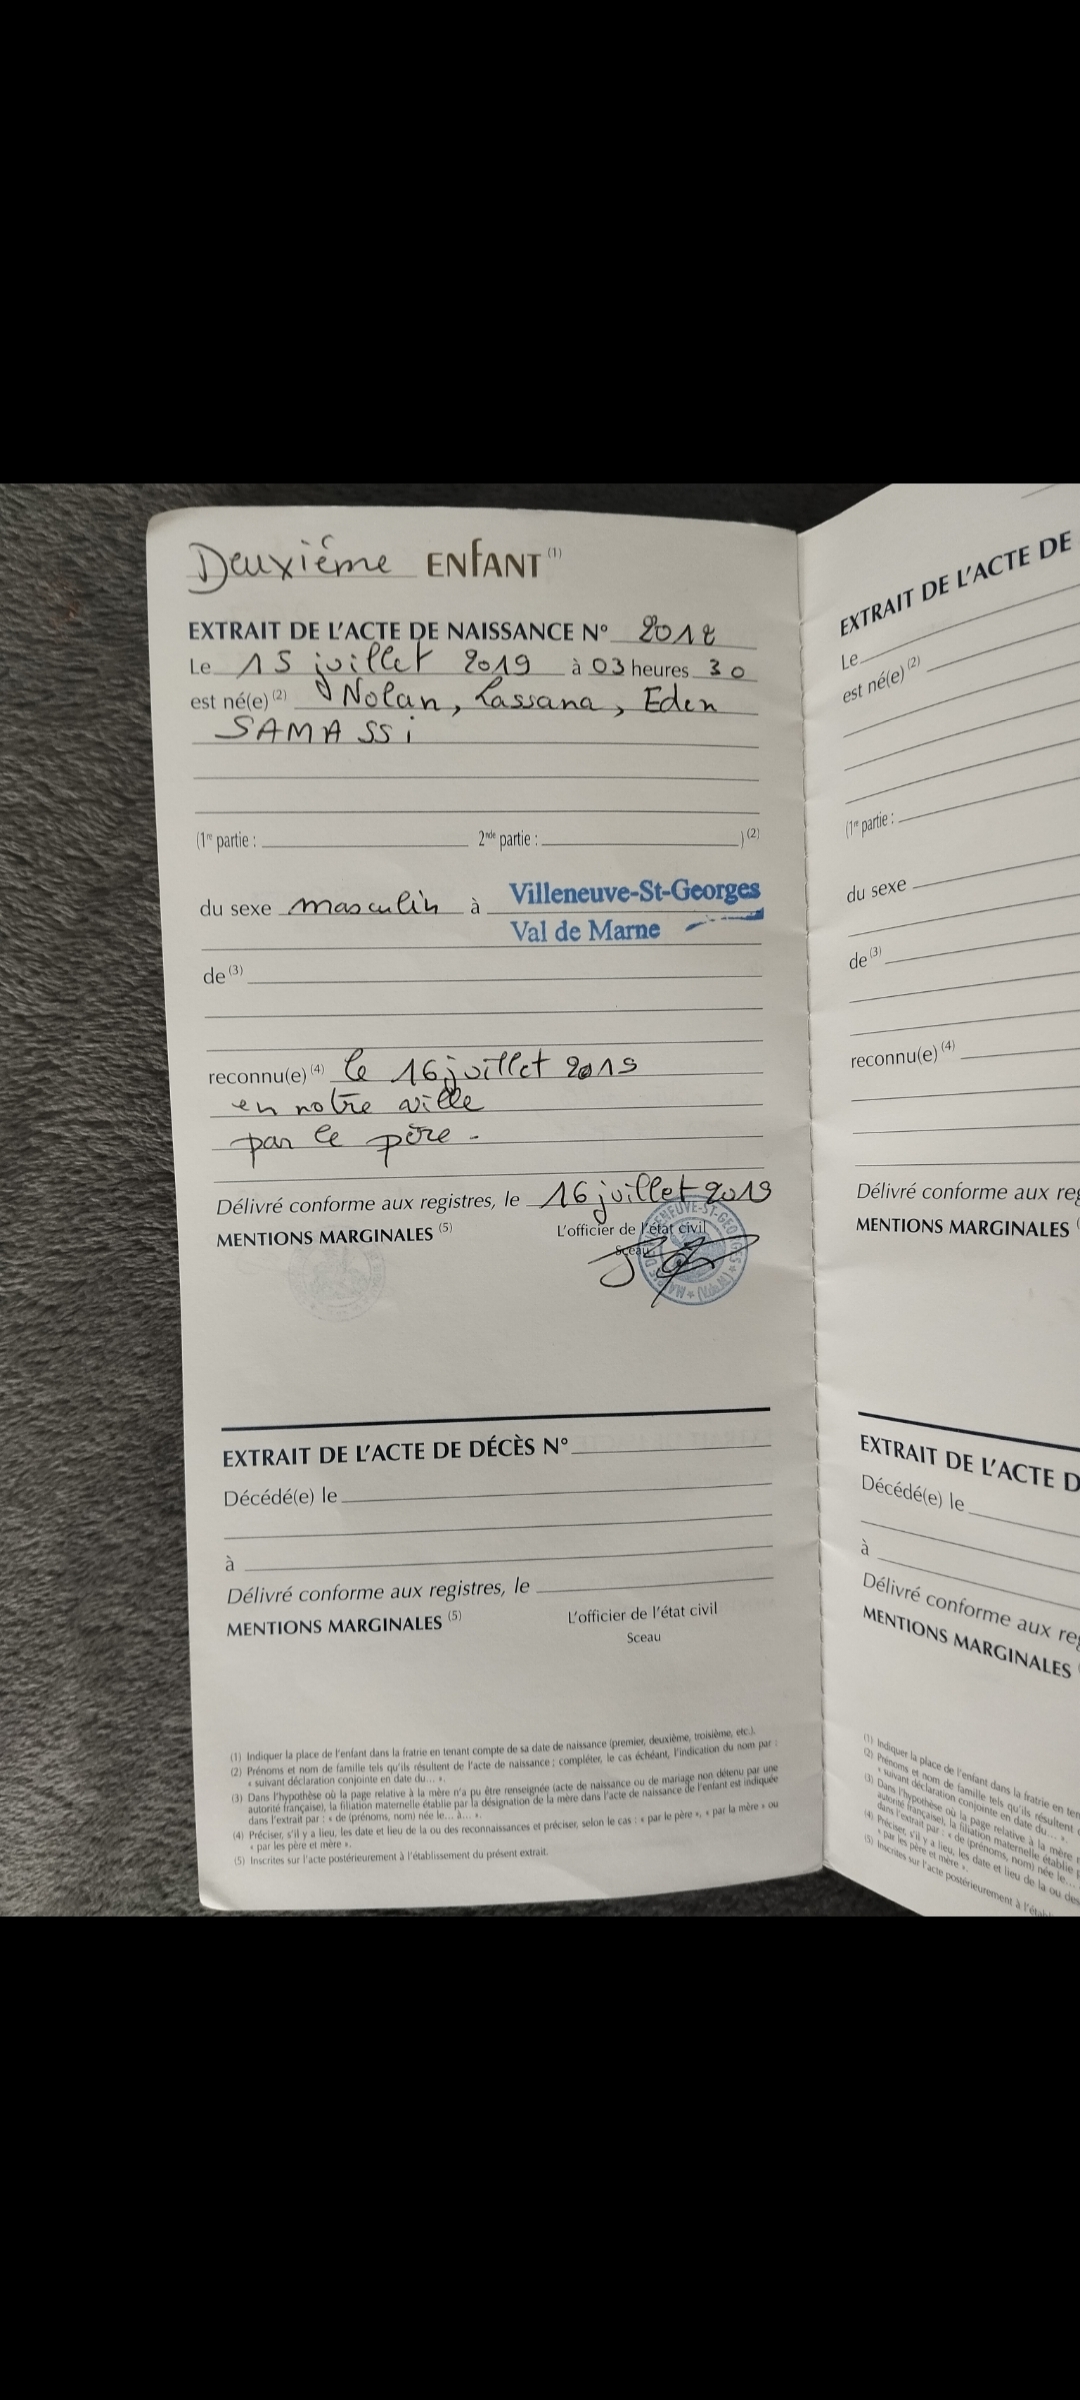 Deuxiéme ENFANT (1)
EXTRAIT DE L'ACTE DE NAISSANCE N° 2012
Le 15 juillet 2019 à 03 heures 30
est né(e) (2) Nolan, Lassana, Eden
SAMASSi
(1re partie : 2nde partie : ) (2)
du sexe masculin à Villeneuve-St-Georges
Val de Marne
de (3)
reconnu(e) (4) le 16 juillet 2019
en notre ville
par le père.
Délivré conforme aux registres, le 16 juillet 2019
MENTIONS MARGINALES (5) L'officier de l'état civil
Sceau
EXTRAIT DE L'ACTE DE DÉCÈS N°
Décédé(e) le
à
Délivré conforme aux registres, le
MENTIONS MARGINALES (5) L'officier de l'état civil
Sceau
(1) Indiquer la place de l'enfant dans la fratrie en tenant compte de sa date de naissance (premier, deuxième, troisième, etc.).
(2) Prénoms et nom de famille tels qu'ils résultent de l'acte de naissance ; compléter, le cas échéant, l'indication du nom par :
« suivant déclaration conjointe en date du... ».
(3) Dans l'hypothèse où la page relative à la mère n'a pu être renseignée (acte de naissance ou de mariage non détenu par une
autorité française), la filiation maternelle établie par la désignation de la mère dans l'acte de naissance de l'enfant est indiquée
dans l'extrait par : « de (prénoms, nom) née le... à... ».
(4) Préciser, s'il y a lieu, les date et lieu de la ou des reconnaissances et préciser, selon le cas : « par le père », « par la mère » ou
« par les père et mère ».
(5) Inscrites sur l'acte postérieurement à l'établissement du présent extrait.
EXTRAIT DE L'ACTE DE
Le
est né(e) (2)
(1re partie :
du sexe
de (3)
reconnu(e) (4)
Délivré conforme aux reg
MENTIONS MARGINALES (
EXTRAIT DE L'ACTE D
Décédé(e) le
à
Délivré conforme aux reg
MENTIONS MARGINALES
(1) Indiquer la place de l'enfant dans la fratrie en ten
(2) Prénoms et nom de famille tels qu'ils résultent
« suivant déclaration conjointe en date du... ».
(3) Dans l'hypothèse où la page relative à la mère
autorité française), la filiation maternelle établie
dans l'extrait par : « de (prénoms, nom) née le...
(4) Préciser, s'il y a lieu, les date et lieu de la ou des
« par les père et mère ».
(5) Inscrites sur l'acte postérieurement à l'étab